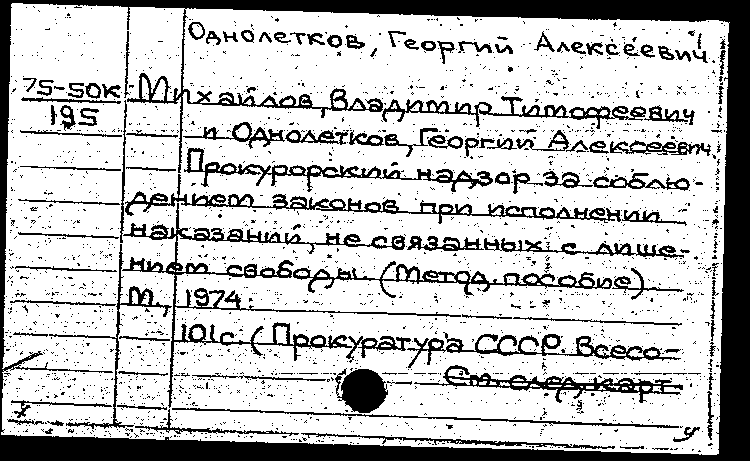 Однолетков, Георгий Алексеевич.
75-50к
195
Михайлов, Владимир Тимофеевич
и Однолетков, Георгий Алексеевич.
Прокурорский надзор за соблю-
дением законов при исполнении
наказаний, не связанных с лише-
нием свободы. (Метод. пособие).
М., 1974.
101с. (Прокуратура СССР. Всесо-
См. след. карт.
у